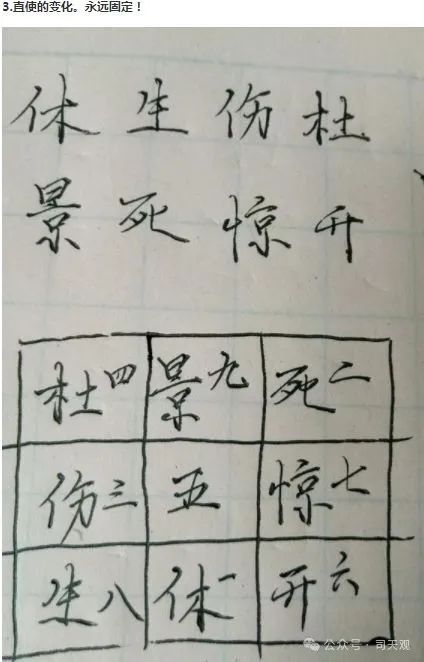 3.直使的变化。永远固定！
休 生 伤 杜
景 死 惊 开
杜四 景九 死二
伤三 五 惊七
生八 休一 开六
公众号·司天观